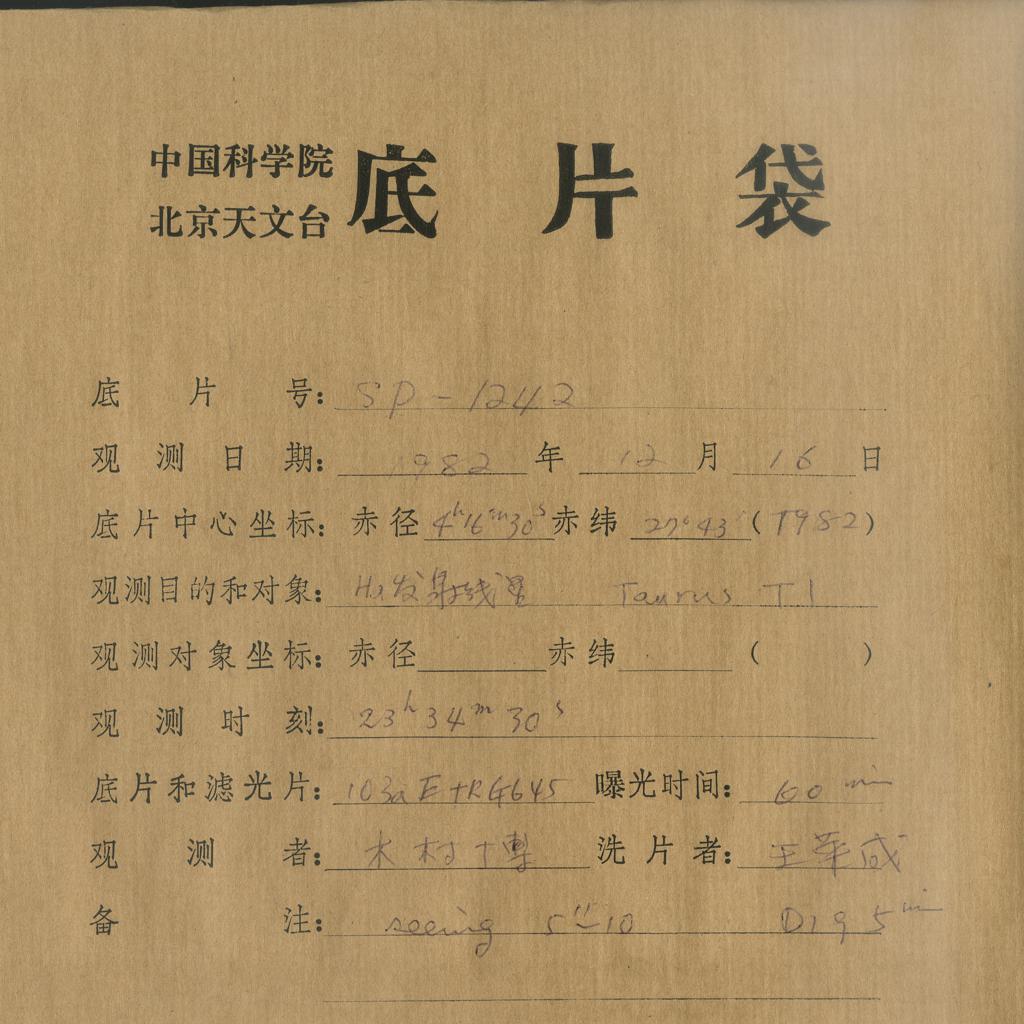 中国科学院
北京天文台 底片袋
底片号: SP-1242
观测日期: 1982年12月16日
底片中心坐标: 赤径 4h16m30s 赤纬 27°43′ (1982)
观测目的和对象: Hα发射线星 Taurus T1
观测对象坐标: 赤径 赤纬 ( )
观测时刻: 23h34m30s
底片和滤光片: 103aE+RG645 曝光时间: 60 min
观测者: 木村博 洗片者: 王華
备注: seeing 5"–10 D19 5min